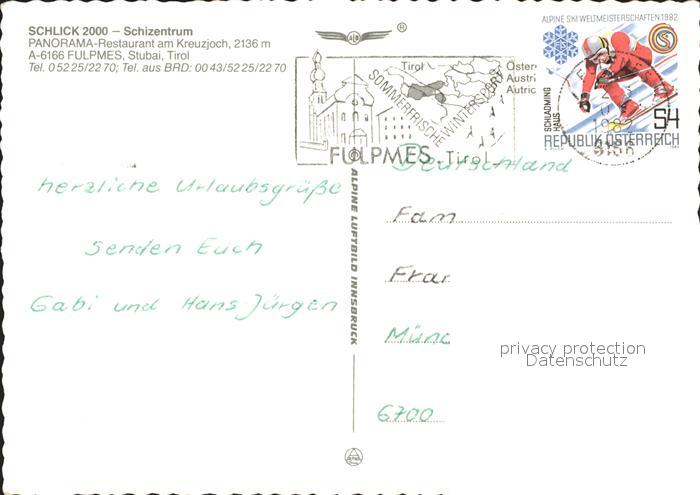 SCHLICK 2000 – Schizentrum
PANORAMA-Restaurant am Kreuzjoch, 2136 m
A-6166 FULPMES, Stubai, Tirol
Tel. 0 52 25/22 70; Tel. aus BRD: 00 43/52 25/22 70
®
Tirol
SOMMERFRISCHE WINTERSPORT
FULPMES - Tirol
Öster
Austri
Autric
ALPINE SKI WELTMEISTERSCHAFTEN 1982
SCHLADMING
HAUS
S4
REPUBLIK ÖSTERREICH
Deutschland
herzliche Urlaubsgrüße
senden Euch
Gabi und Hans-Jürgen
ALPINE LUFTBILD INNSBRUCK
Fam
Münc
6700
privacy protection
Datenschutz